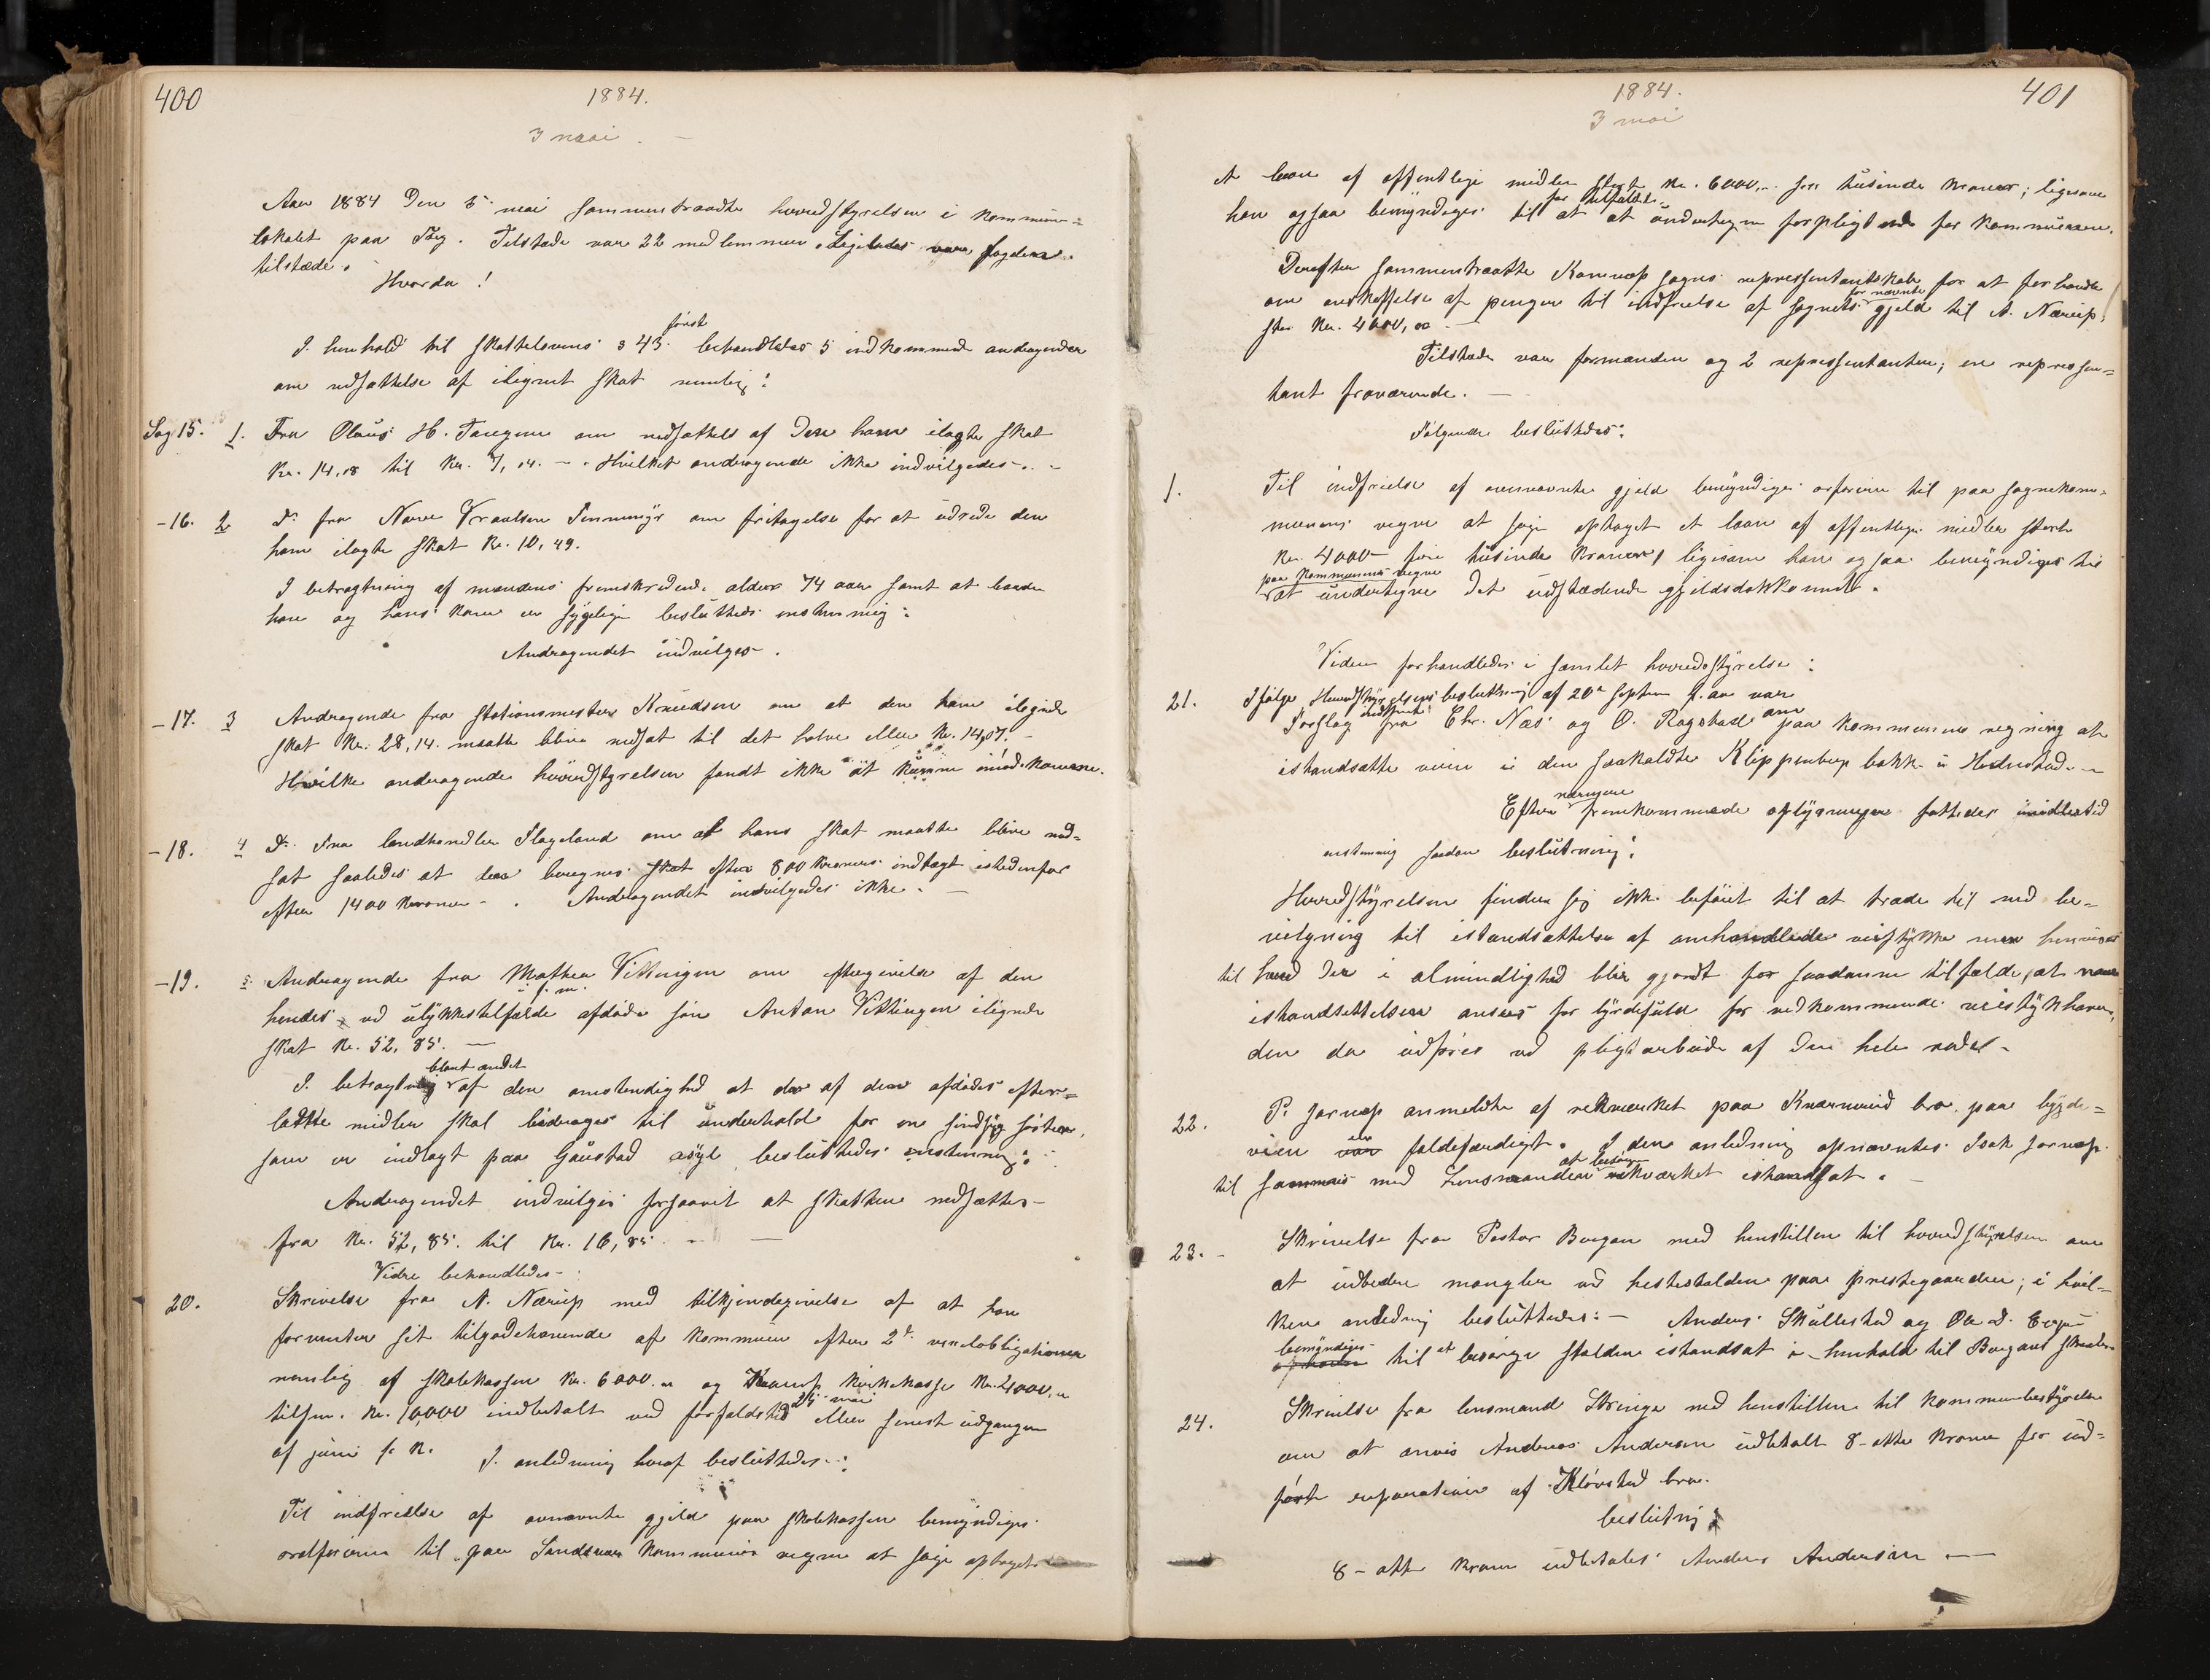 400
1884.
3 mai. –
Aar 1884 Den 3 mai sammentraadte herredstyrelsen i kommune=
lokalet paa Teig. Tilstæde var 22 medlemmer. Ligeledes var fogden
tilstæde.
Hvorda!
først
I henhold til skattelovens § 43. behandledes 5 indkommende andragender
om nedsættelse af ilignet skat nemlig:
Sag 15. 1. Fra Olaus H. Tangen om nedsættels af den ham ilagte skat
Kr. 14,08 til Kr. 7,04. – . Hvilket andragende ikke indvilgedes. –
-16. 2 Do fra Narve Vraalsen Temmemyr om fritagelse for at udrede den
ham ilagte skat Kr. 10,49.
I betragtning af mandens fremskredende alder 74 aar samt at baade
han og hans kone er sygelige besluttedes enstemmig:
Andragendet indvilges.
-17. 3 Andragende fra Stationsmester Knudsen om at den ham ilignede
skat Kr. 28,14. maatte blive nedsat til det halve eller Kr. 14,07. –
Hvilke andragende herredstyrelsen fandt ikke at kunne imødekomme.
-18. 4 Do. Fra landhandler Flageland om at hans skat maatte blive ned=
sat saaledes at den beregnes skat efter 800 kroners indtægt istedenfor
efter 1400 kroner – . Andragendet indvilgedes ikke. –
-19. 5. Andragende fra Mathea Vittingen om eftergivelse af den
hendes ved ulykkestilfælde afdøde søn Anton Vittingen ilignede
skat Kr. 52,85. –
blant andet
I betragtning af den omstendighed at der af den afdødes efter=
latte midler skal bidrages til underhold for en sindsyg søster,
som er indlagt paa Gaustad asyl besluttedes enstemmig:
Andragendet indvilges forsaavit at skatten nedsættes
fra Kr. 52,85. til Kr. 16,85. – –
Vidre behandledes –
20. Skrivelse fra A. Nærup med tilkjendegivelse af at han
forventer sit tilgodehavende af kommunen efter 2de obligationer
nemlig af skolekassen Kr. 6000.00 og Komnes kirkekasse Kr. 4000,00
mai
tilsm. Kr. 10,000 indbetalt ved forfaldstid eller senest udgangen
af juni f. K. I anledning heraf besluttedes:
Til indfrielse af ovnævnte gjeld paa skolekassen bemyndiges
ordføreren til paa Sandsvær kommunes vegne at søge optaget
401
1884.
3 mai
et laan af offentlige midler stort Kr. 6000,– sex tusende kroner; ligesom
for tilfældet
han ogsaa bemyndiges til at undertegne forpligtende for kommunen.
Derefter sammentraatte Komnes sogns repressentantskab for at forhandle
for nævnte
om anskaffelse af penger til indfrielse af sognets gjeld til A. Nærup,
stor Kr. 4000,00 –
Tilstæde var formanden og 2 repressentanter; en repressen=
tant fraværende. –
Følgende besluttedes:
1. Til indfrielse af ovennævnte gjeld bemyndiges ordføreren til paa sognekom=
munens vegne at søge optaget et laan af offentlige midler stort
Kr. 4000 – fire tusinde kroner, ligesom han ogsaa bemyndiges til
paa Kommunens vegne
at undertegne det udstædende gjeldsdokkoment.
Viden forhandledes i samlet herredsstyrelse:
21. Ifølge Herredstyrelsens beslutning af 20de Septem f. aar var
Forslag fra Chr. Næs og O. Rogstad om paa kommunens regning at
istandsætte veien i den saakaldte Klippenberg bakke i Hedenstad. –
nærmere
Efter fremkommede oplysninger fattedes imidlertid
enstemmig saadan beslutning:
Herredstyrelsen finder sig ikke beføiet til at træde til med be=
vilgning til istandsættelse af omhandlede veistykke men henviser
til hvad der i almindlighed blir gjordt for saadanne tilfælde, at naar
istandsettelsen ansees for byrdefuld for vedkommende veistykkhaven=
den da udføres ved pligtarbeide af den hele rode. –
22. P. Jarnes anmeldte af rekværket paa Kværnmud bro paa bygde=
er
veien var faldefærdigt. I den anledning opnævntes Isak Jarnes
at besørge
til sammens med Lensmanden rekværket istandsat. –
23. – Skrivelse fra Pastor Borgan med henstillen til herredstyrelsen om
at udbedre mangler ved hestestalden paa prestegaarden; i hvil=
ken anledning besluttedes: – Anders Skullestad og Ole J.
bemyndiges
til at besørge stalden istandsat i henhold til Borgans
24. Skrivelse fra lensmand Stringe med henstillen til kommunebestyrelsen
om at anvis Andreas Andersen udbetalt 8 – otte kroner for ud=
førte reparationer af Kløvstad bro.
beslutning:
8 – otte kroner udbetales Anders Andersen. –